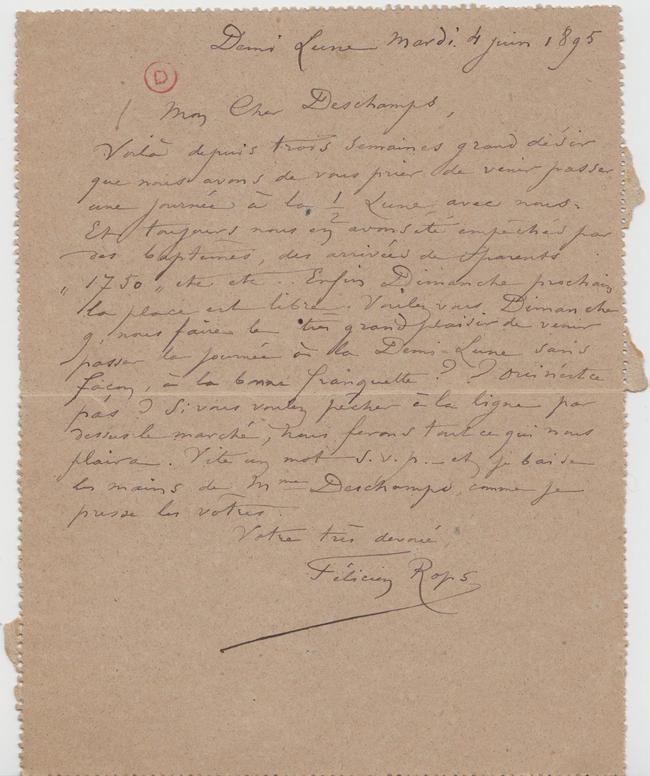 Demi Lune Mardi. 4 juin 1895
D
Mon Cher Deschamps,
Voilà depuis trois semaines grand désir
que nous avons de vous prier de venir passer
une journée à la 1/2 Lune avec nous.
Et toujours nous en avons été empêchés par
des baptêmes, des arrivées de parents
„ 1750 „ etc etc. Enfin Dimanche prochain
la place est libre. Voulez vous Dimanche
9, nous faire le très grand plaisir de venir
passer la journée à la Demi-Lune sans
façon, à la bonne franquette ? ? Oui n'est ce
pas ? Si vous voulez pêcher à la ligne par
dessus le marché, nous ferons tout ce qui nous
plaira. Vite un mot s.v.p. – et je baise
les mains de Mme Deschamps, comme je
presse les vôtres.
Votre très dévoué,
Félicien Rops